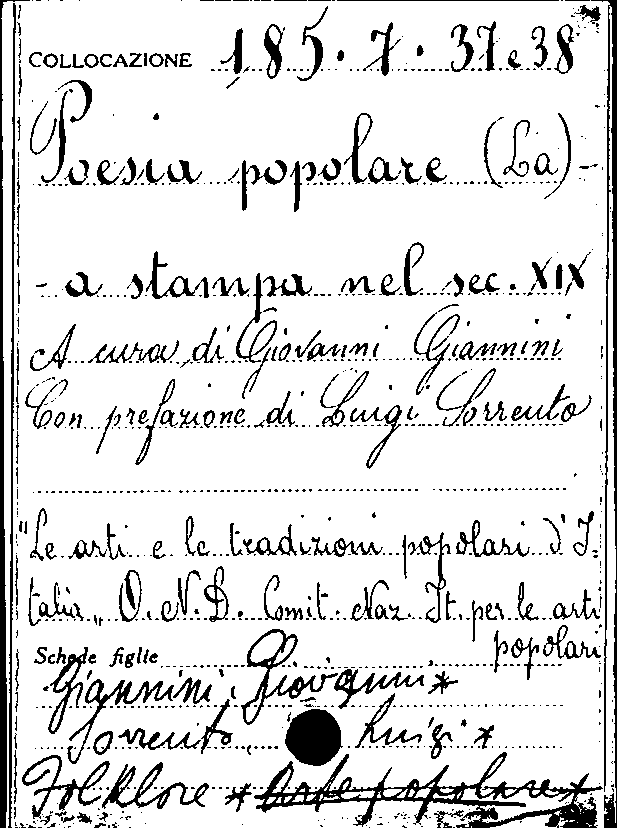 COLLOCAZIONE 185.7.37 e 38
Poesia popolare (La) -
- a stampa nel sec. XIX
A cura di Giovanni Giannini
Con prefazione di Luigi Sorrento
"Le arti e le tradizioni popolari d'I-
talia„ O.N.D. Comit. Naz. It. per le arti
popolari
Schede figlie
Giannini, Giovanni *
Sorrento, Luigi *
Folklore * Arte popolare *